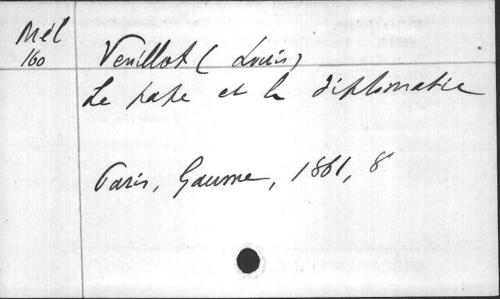 Mél
160
Veuillot (Louis)
Le pape et la diplomatie
Paris, Gaume, 1861, 8